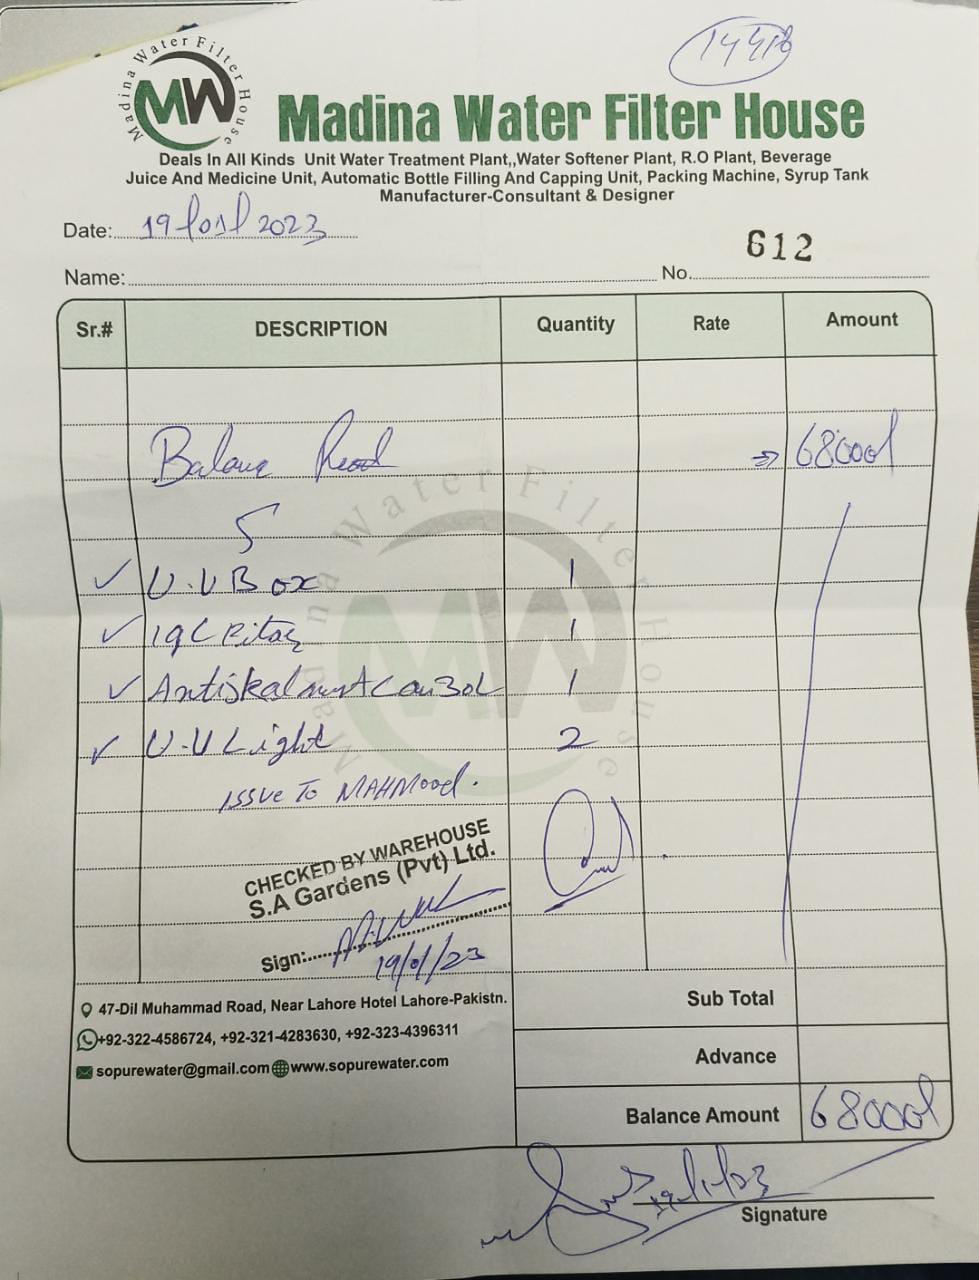 Madina Water Filter House
MW
Madina Water Filter House
Deals In All Kinds Unit Water Treatment Plant,,Water Softener Plant, R.O Plant, Beverage
Juice And Medicine Unit, Automatic Bottle Filling And Capping Unit, Packing Machine, Syrup Tank
Manufacturer-Consultant & Designer
Date: 19/01/2023
612
Name: No.
Sr.# DESCRIPTION Quantity Rate Amount
Balance 68000/
5
✓ U.V Box 1
✓ 1
✓ 1
✓ U.V Light 2
ISSUE TO MAHMOOD.
Madina Water Filter House
MW
CHECKED BY WAREHOUSE
S.A Gardens (Pvt) Ltd.
Sign:
19/01/23
47-Dil Muhammad Road, Near Lahore Hotel Lahore-Pakistn.
+92-322-4586724, +92-321-4283630, +92-323-4396311
sopurewater@gmail.com www.sopurewater.com
Sub Total
Advance
Balance Amount 68000/
Signature